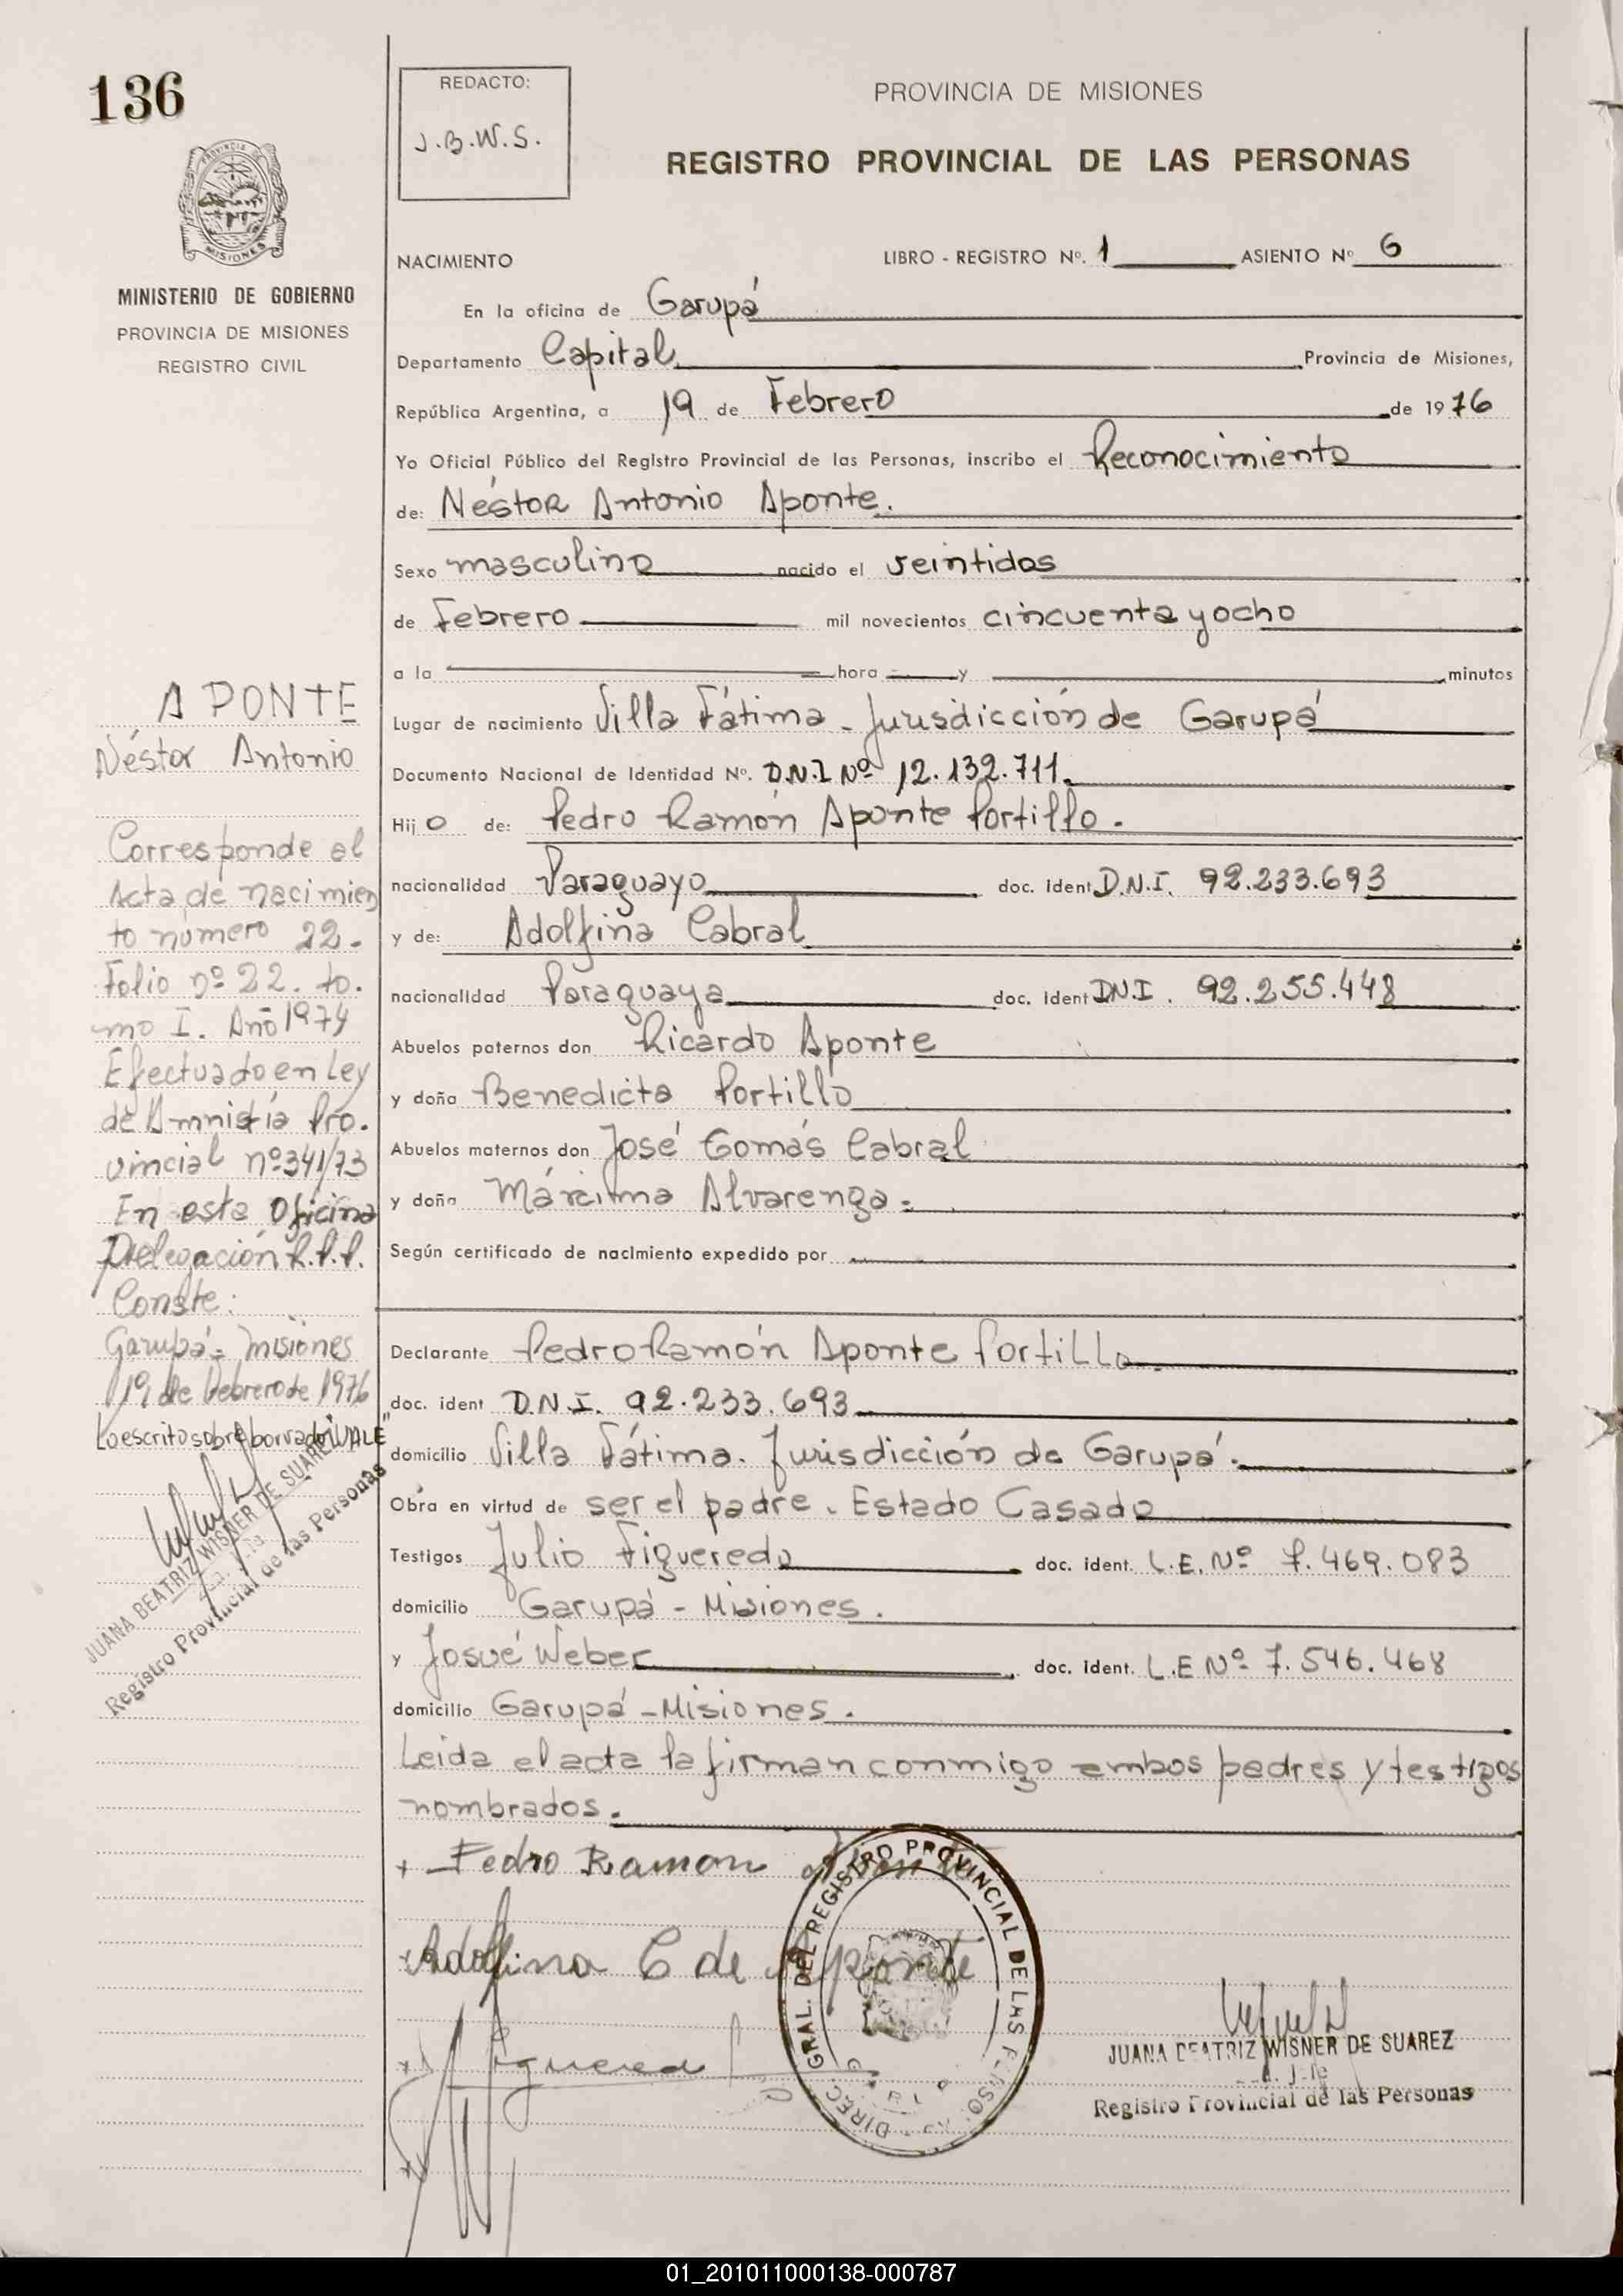 136
REDACTO:
J.B.W.S.
PROVINCIA DE MISIONES
REGISTRO PROVINCIAL DE LAS PERSONAS
PROVINCIA DE
MISIONES
MINISTERIO DE GOBIERNO
PROVINCIA DE MISIONES
REGISTRO CIVIL
NACIMIENTO LIBRO - REGISTRO Nº. 1 ASIENTO Nº 6
En la oficina de Garupá
Departamento Capital Provincia de Misiones,
República Argentina, a 19 de Febrero de 1976
Yo Oficial Público del Registro Provincial de las Personas, inscribo el Reconocimiento
de: Néstor Antonio Aponte.
Sexo masculino nacido el veintidos
de Febrero mil novecientos cincuenta y ocho
a la hora y minutos
Lugar de nacimiento Villa Fátima - Jurisdicción de Garupá
Documento Nacional de Identidad Nº. D.N.I Nº 12.132.711.
Hijo de: Pedro Ramón Aponte Portillo.
nacionalidad Paraguayo doc. ident D.N.I. 92.233.693
y de: Adolfina Cabral
nacionalidad Paraguaya doc. ident D.N.I. 92.255.448
Abuelos paternos don Ricardo Aponte
y doña Benedicta Portillo
Abuelos maternos don José Tomás Cabral
y doña Márcima Alvarenga.
Según certificado de nacimiento expedido por
Declarante Pedro Ramón Aponte Portillo.
doc. ident D.N.I. 92.233.693
domicilio Villa Fátima. Jurisdicción de Garupá.
Obra en virtud de ser el padre. Estado Casado
Testigos Julio Figueredo doc. ident. L.E. Nº 7.469.083
domicilio Garupá - Misiones.
y Josué Weber doc. ident. L.E Nº 7.546.468
domicilio Garupá - Misiones.
Leida el acta la firman conmigo ambos padres y testigos
nombrados.
+ Pedro Ramon
+ Adolfina C de Aponte
JUANA BEATRIZ WISNER DE SUAREZ
Registro Provincial de las Personas
DIREC. GRAL. DEL REGISTRO PROVINCIAL DE LAS PERSONAS
APONTE
Néstor Antonio
Corresponde al
Acta de nacimien
to número 22.
Folio nº 22. to.
mo I. Año 1974
Efectuado en Ley
de Amnistía Pro.
vincial nº 341/73
En esta Oficina
Delegación R.P.P.
Conste:
Garupá - Misiones
19 de Febrero de 1976
Lo escrito sobre borrado "VALE"
JUANA BEATRIZ WISNER DE SUAREZ
Registro Provincial de las Personas
01_201011000138-000787